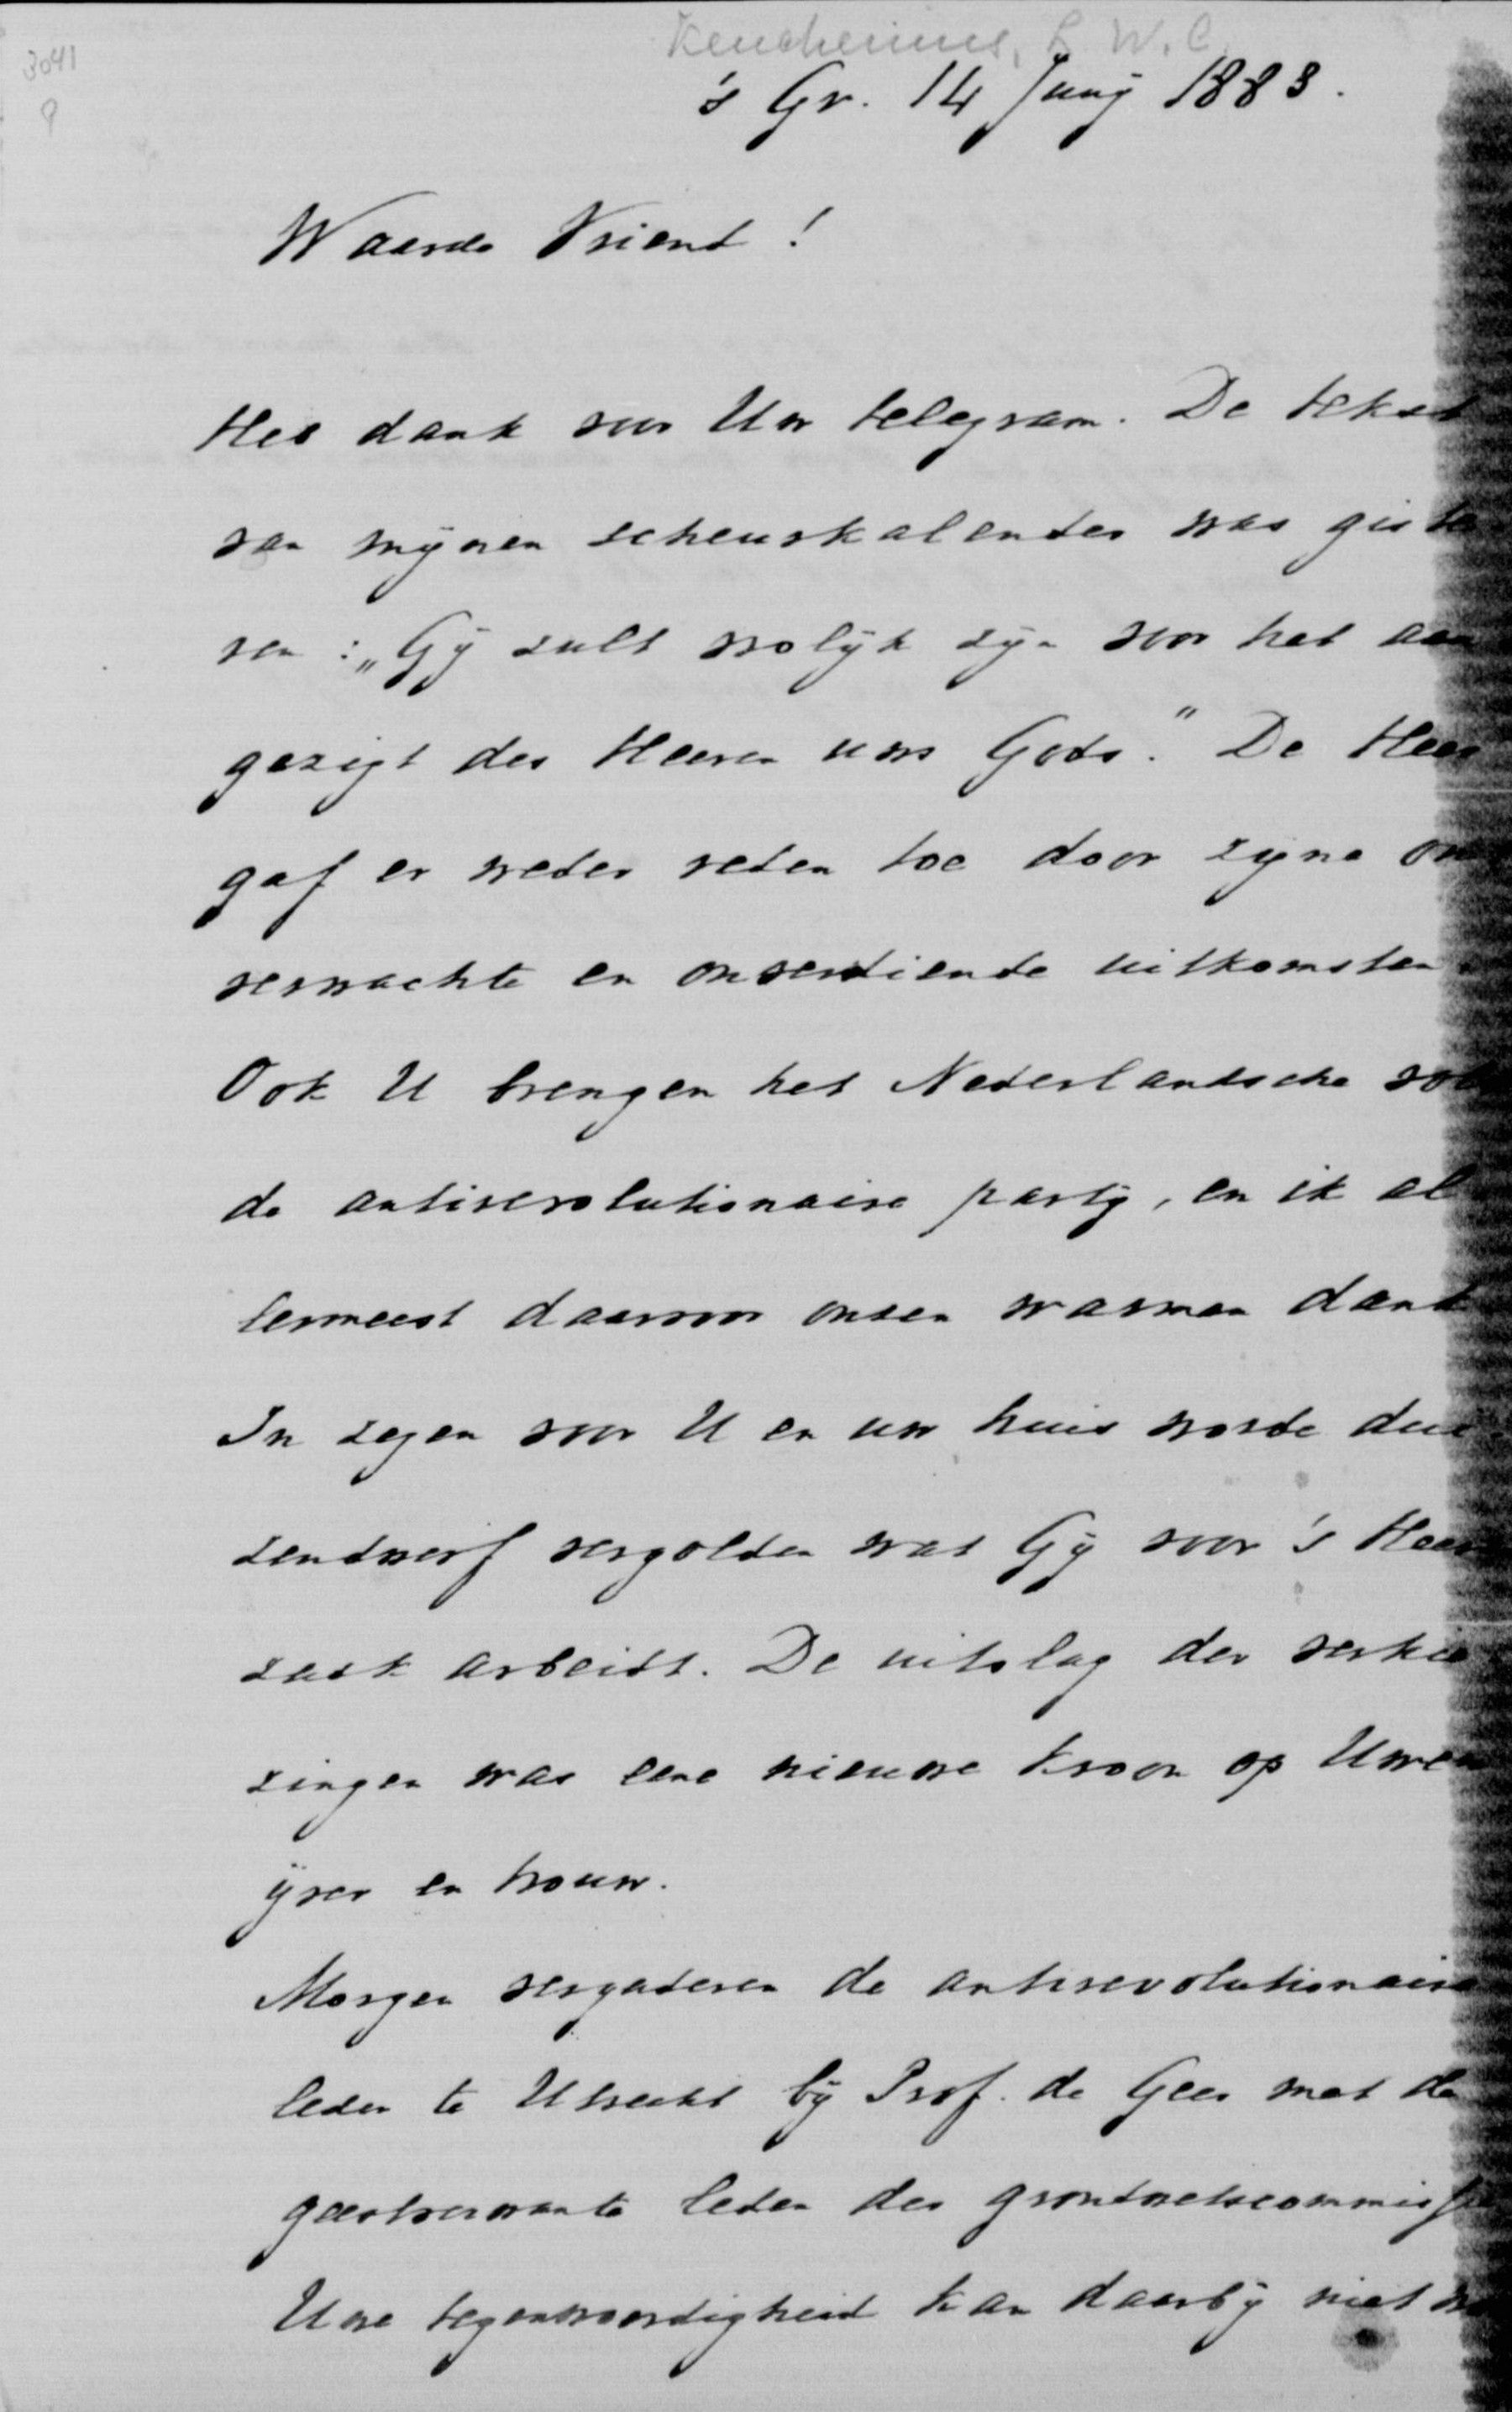 3041
Keuchenius, L W. C.
's Gr. 14 Juny 1883.
Waarde Vriend!
Heb dank voor Uw telegram. De tekst
van mijnen scheurkalender was giste
ren: „Gij zult vrolijk zijn voor het aan
gezigt des Heeren uws Gods." De Heer
gaf er weder reden toe door zijne on
verwachte en onverdiende uitkomsten.
Ook U brengen het Nederlandsche volk
de antirevolutionaire partij, en ik al
lermeest daarvoor onzen warmen dank
In zegen voor U en uw huis worde dui
zendwerf vergolden wat Gij voor 's Heeren
zaak arbeidt. De uitslag der verkie
zingen was eene nieuwe kroon op Uwen
ijver en trouw.
Morgen vergaderen de antirevolutionaire
leden te Utrecht bij Prof. de Geer met de
geestverwante leden der grondwetscommissie
Uwe tegenwoordigheid kan daarbij niet